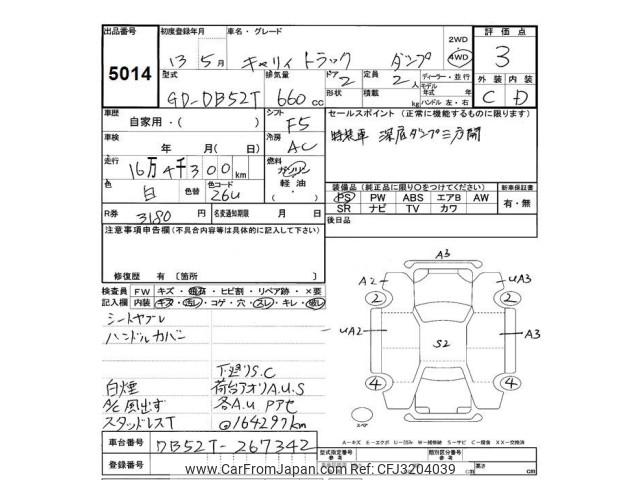 出品番号 初度登録年月 車名・グレード 2WD 4WD 評価点
5014 13年5月 キャリィ トラック ダンプ 3
型式 排気量 ドア 定員 ディーラー・並行 外装 内装
GD-DB52T 660cc 2 2人 モデル年式 年 C D
形状 積載 kg ハンドル 左・右
車歴 自家用・( ) シフト F5 セールスポイント (正常に機能するものに限ります)
車検 年 月(日) 冷房 AC 特装車 深底ダンプ三方開
走行 16万4千300km 燃料 ガソリン 軽油・
色 白 色替 色コード 26U
装備品 (純正品に限り○をつけてください) 新車保証書
PS PW ABS エアB AW 有・無
SR ナビ TV カワ
R券 3180円 名変通知期限 月 日 後日品
注意事項申告欄(不具合内容等は具体的に記入して下さい)
修復歴 有 〔箇所 〕
検査員 FW キズ・飛石・ヒビ割・リペア跡・×要
記入欄 内装 キズ・汚レ・コゲ・穴・スレ・キレ・破レ
シートヤブレ
ハンドルカバー
下廻りS.C
白煙 荷台アオリA.U.S
A/C風出ず 各A.U Pアセ
スタッドレスT @164297km
A3
A2 UA3
2 2
UA2 S2 A3
4 4
スペア
A-キズ E-エクボ U-凹み W-補修跡 S-サビ C-腐食 XX-交換済
車台番号 DB52T-267342
登録番号
型式指定番号 参考 類別区分番号 参考
長さ cm 幅 cm 高さ cm
www.CarFromJapan.com Ref: CFJ3204039